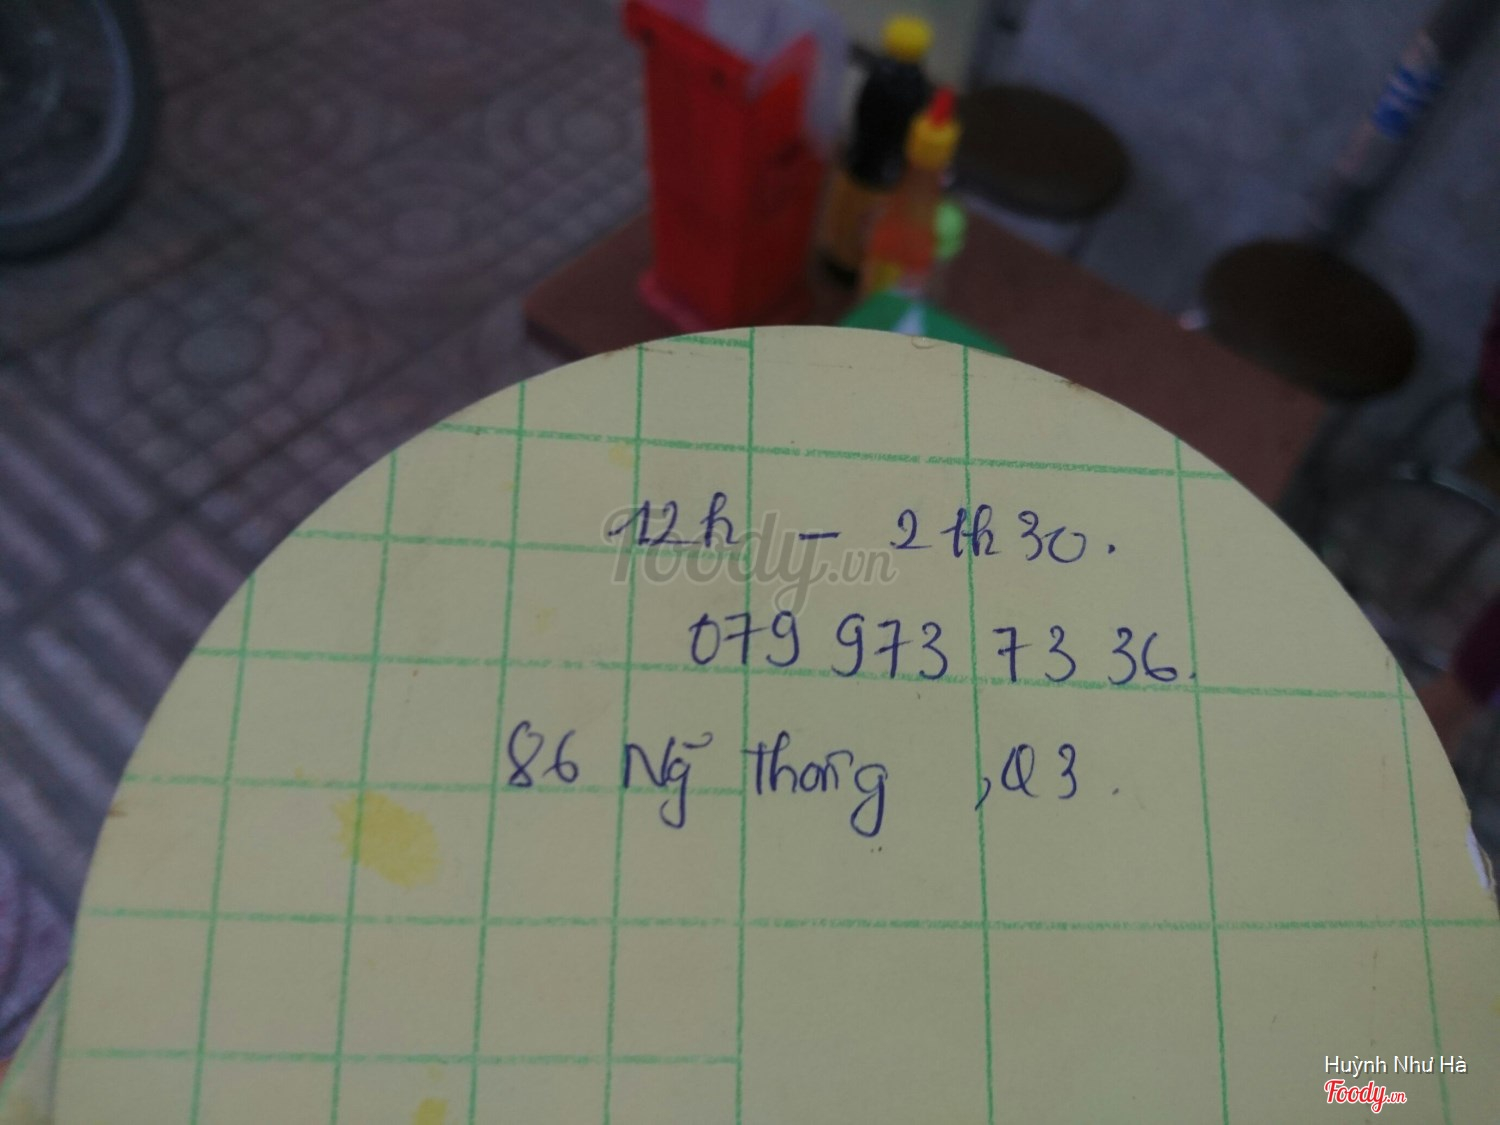 12h - 21h30.
079 973 73 36.
86 Ngô Thông, Q3.
Foody.vn
Huỳnh Như Hà
Foody.vn